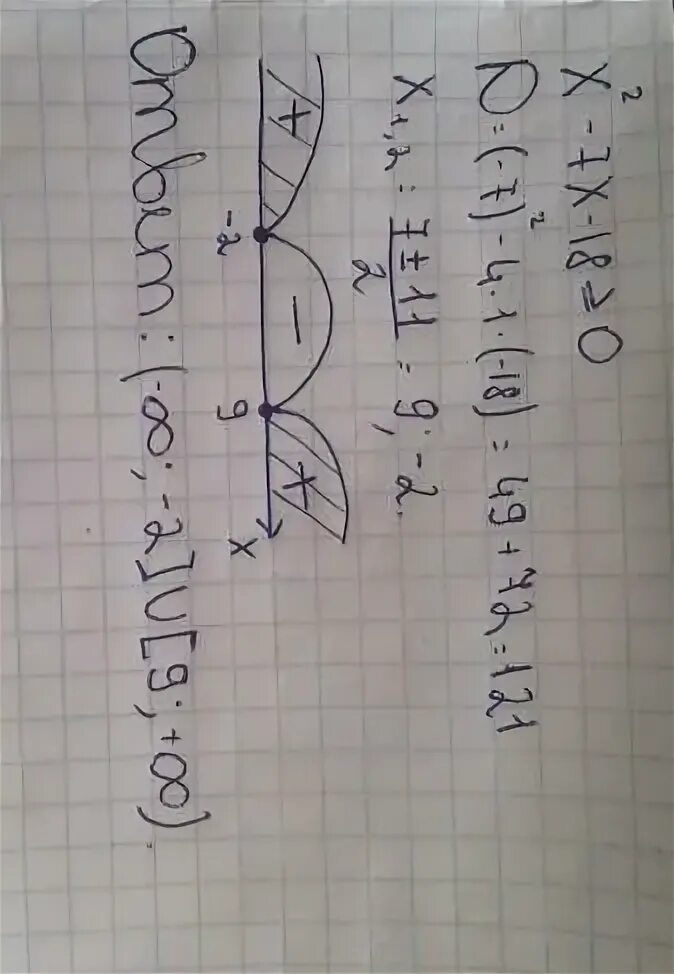 x² - 7x - 18 ≥ 0
D = (-7)² - 4 · 1 · (-18) = 49 + 72 = 121
x₁,₂ = (7 ± 11) / 2 = 9; -2.
+ - +
-2 9 x
Ответ: (-∞; -2] ∪ [9; +∞).